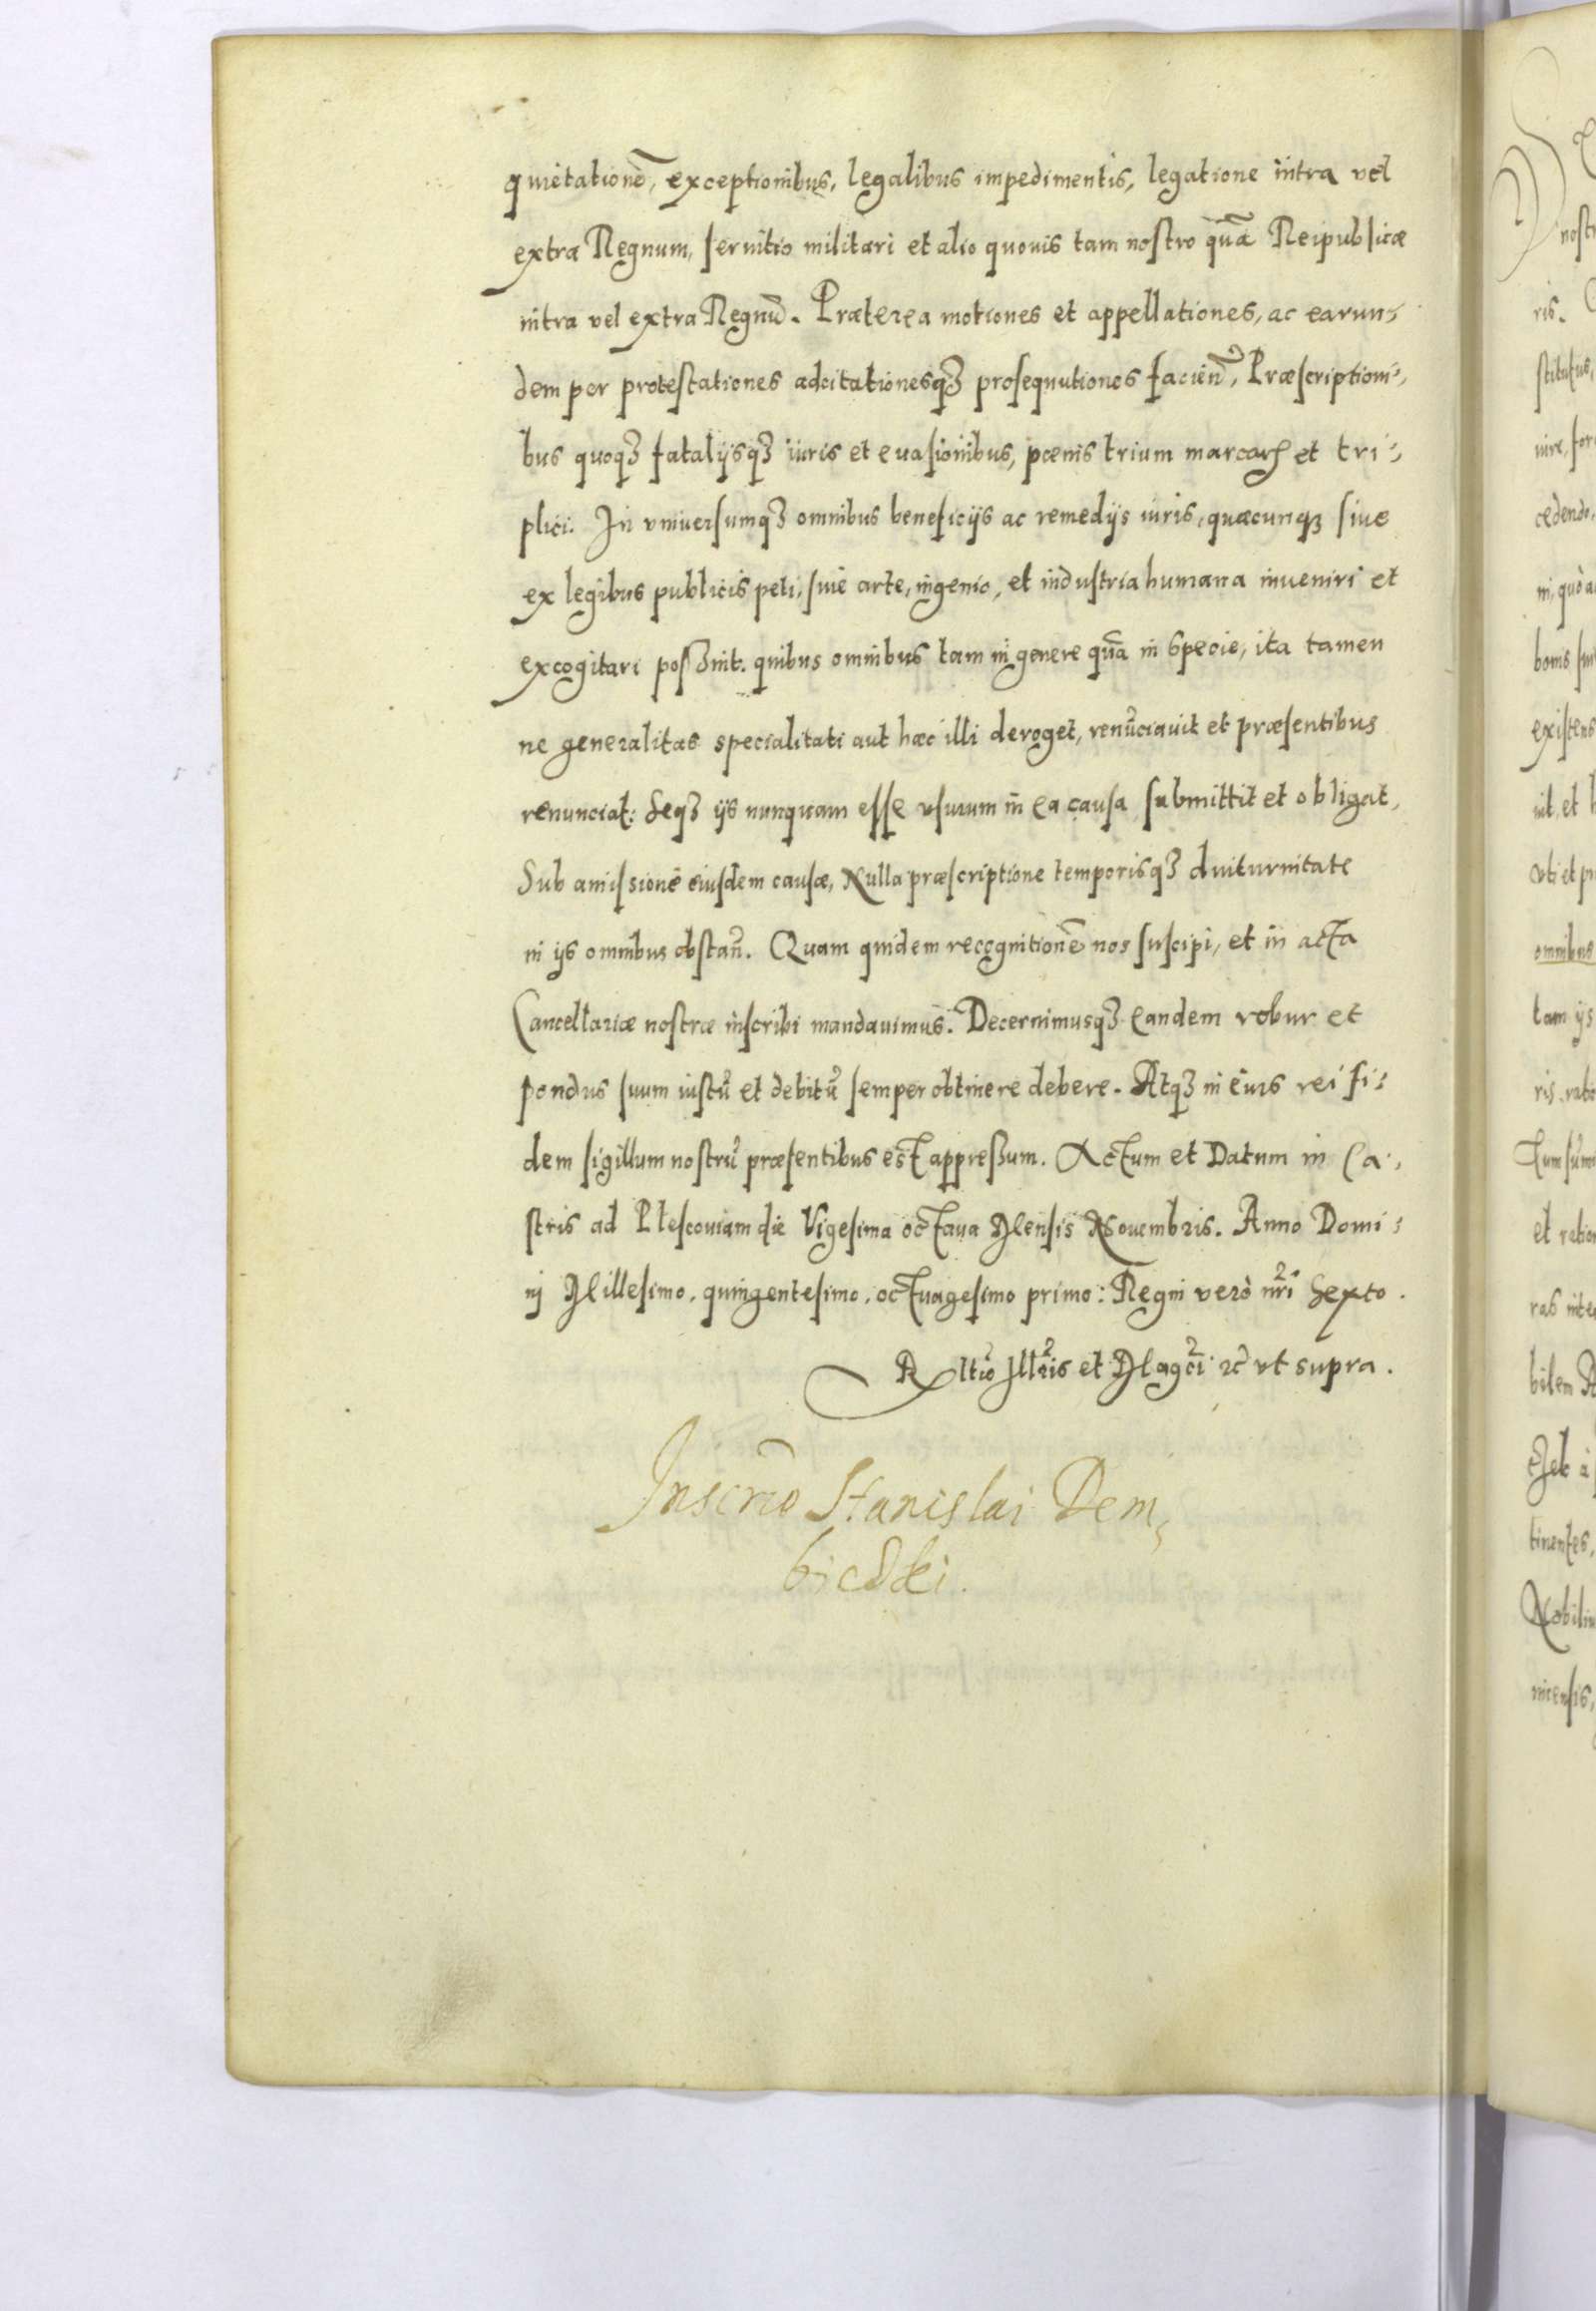 quietatione, exceptionibus, legalibus impedimentis, legatione intra vel
extra Regnum, seruitio militari et alio quouis tam nostro quā Reipublicæ
intra vel extra Regnū. Præterea motiones et appellationes, ac earun-
dem per protestationes adcitationesqꝫ prosequutiones facien̄, Præscriptioni-
bus quoqꝫ fatalijsqꝫ iuris et euasionibus, pœnis trium marcarꝝ et tri-
plici. In vniuersumqꝫ omnibus beneficijs ac remedijs iuris, quæcunqꝫ siue
ex legibus publicis peti, siue arte, ingenio, et industria humana inueniri et
excogitari possunt. quibus omnibus tam in genere quā in specie, ita tamen
ne generalitas specialitati aut hæc illi deroget, renūciauit et præsentibus
renunciat: seqꝫ ijs nunquam esse vsurum in ea causa submittit et obligat,
Sub amissione eiusdem causæ, Nulla præscriptione temporisqꝫ diuturnitate
in ijs omnibus obstan̄. Quam quidem recognitionē nos suscipi, et in acta
Cancellariæ nostræ inscribi mandauimus. Decernimusqꝫ eandem robur et
pondus suum iustū et debitū semper obtinere debere. Atqꝫ in eius rei fi-
dem sigillum nostrū præsentibus est appressum. Actum et Datum in Ca-
stris ad Plescouiam die Vigesima octaua Mensis Nouembris. Anno Domi-
nj Millesimo, quingentesimo, octuagesimo primo: Regni verò nr̄i Sexto.
Rltio Illris et Magci ꝛc̄ vt supra.
Inscrio Stanislai Dem-
bicski.